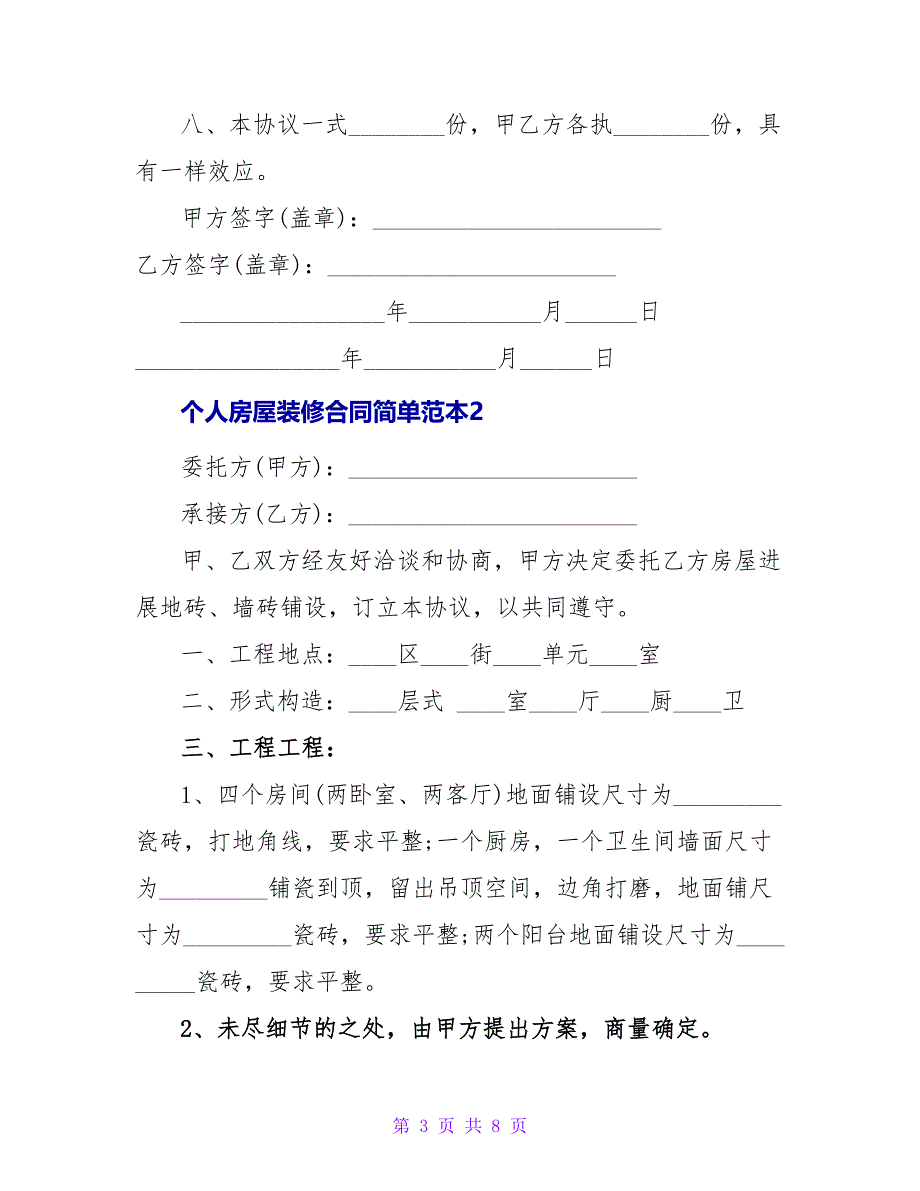 八、本协议一式________份，甲乙方各执________份，具
有一样效应。
甲方签字(盖章)：________________________
乙方签字(盖章)：________________________
_________________年___________月______日
_________________年___________月______日
个人房屋装修合同简单范本2
委托方(甲方)：________________________
承接方(乙方)：________________________
甲、乙双方经友好洽谈和协商，甲方决定委托乙方房屋进
展地砖、墙砖铺设，订立本协议，以共同遵守。
一、工程地点：____区____街____单元____室
二、形式构造：____层式 ____室____厅____厨____卫
三、工程工程：
1、四个房间(两卧室、两客厅)地面铺设尺寸为_________
瓷砖，打地角线，要求平整;一个厨房，一个卫生间墙面尺寸
为_________铺瓷到顶，留出吊顶空间，边角打磨，地面铺尺
寸为_________瓷砖，要求平整;两个阳台地面铺设尺寸为____
_____瓷砖，要求平整。
2、未尽细节的之处，由甲方提出方案，商量确定。
第 3 页 共 8 页